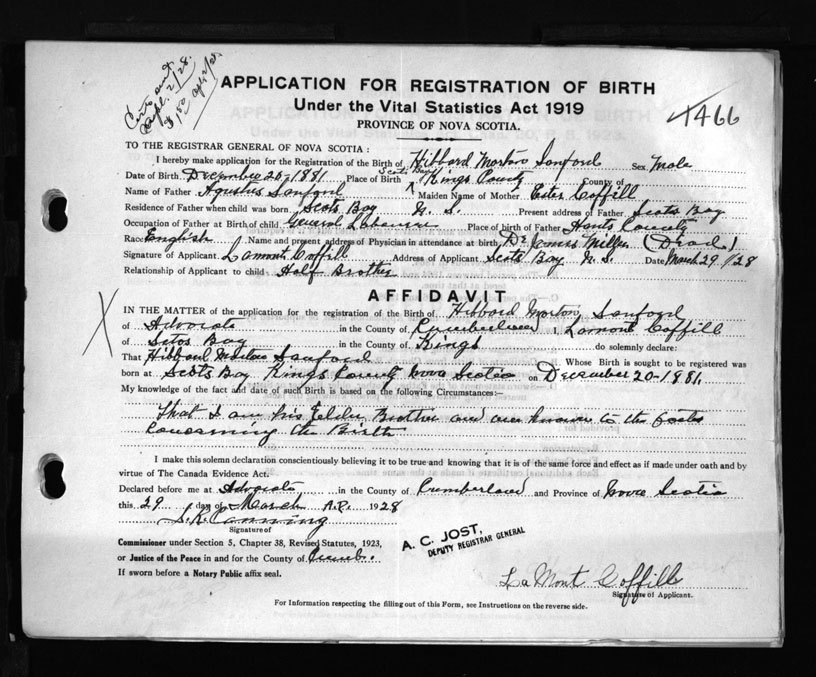 Cert sent
Sept. 2/28.
$1.50
APPLICATION FOR REGISTRATION OF BIRTH
Under the Vital Statistics Act 1919
1466
PROVINCE OF NOVA SCOTIA.
TO THE REGISTRAR GENERAL OF NOVA SCOTIA :
I hereby make application for the Registration of the Birth of Hibbard Morton Sanford Sex Male
Date of Birth December 20-1881 Place of Birth Scots Bay Kings County County of
Name of Father Agustus Sanford Maiden Name of Mother Ester Coffill
Residence of Father when child was born Scots Bay N. S. Present address of Father Scots Bay
Occupation of Father at Birth of child General Labourer Place of birth of Father Hants County
Race English Name and present address of Physician in attendance at birth Dr James Miller (Dead)
Signature of Applicant Lamont Coffill Address of Applicant Scots Bay N. S. Date March 29/28
Relationship of Applicant to child Half Brother
AFFIDAVIT
IN THE MATTER of the application for the registration of the Birth of Hibbard Morton Sanford
of Advocate in the County of Cumberland I, Lamont Coffill
of Scots Bay in the County of Kings do solemnly declare:
That Hibbard Morton Sanford Whose Birth is sought to be registered was
born at Scots Bay Kings County Nova Scotia on December 20-1881.
My knowledge of the fact and date of such Birth is based on the following Circumstances:—
That I am his Elder Brother and am known to the facts
Concerning the Birth
I make this solemn declaration conscientiously believing it to be true and knowing that it is of the same force and effect as if made under oath and by
virtue of The Canada Evidence Act.
Declared before me at Advocate in the County of Cumberland and Province of Nova Scotia
this 29 day of March A.D. 1928
S. R. Canning
Signature of
Commissioner under Section 5, Chapter 38, Revised Statutes, 1923,
or Justice of the Peace in and for the County of Cumb.
If sworn before a Notary Public affix seal.
A. C. JOST,
DEPUTY REGISTRAR GENERAL
LaMont Coffill
Signature of Applicant.
For Information respecting the filling out of this Form, see Instructions on the reverse side.